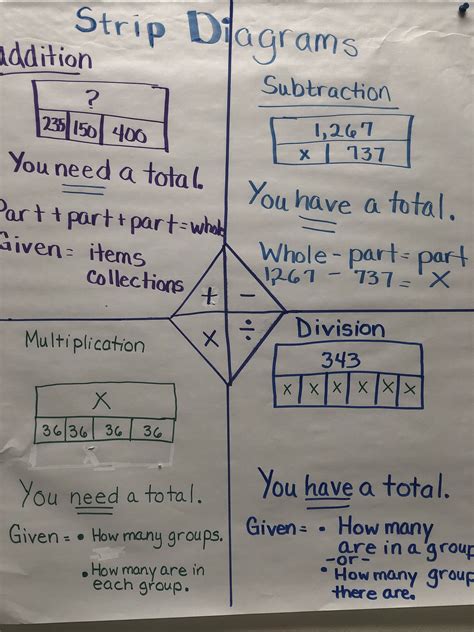 Strip Diagrams
addition
?
235 150 400
You need a total.
Part + part + part = whole
Given = items
collections
Subtraction
1,267
x 737
You have a total.
Whole - part = part
1267 - 737 = X
+ -
x ÷
Multiplication
X
36 36 36 36
You need a total.
Given = • How many groups.
• How many are in
each group.
Division
343
x x x x x x
You have a total.
Given = • How many
are in a group
-or-
• How many group
there are.